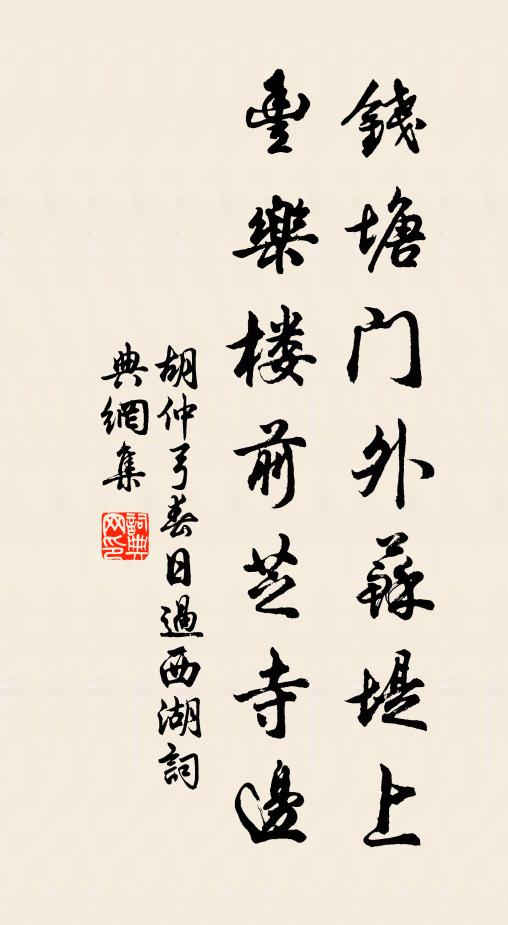 錢塘門外蘇堤上
豐樂楼前芝寺邊
胡仲弓春日過西湖詞
典網集
詞典網印